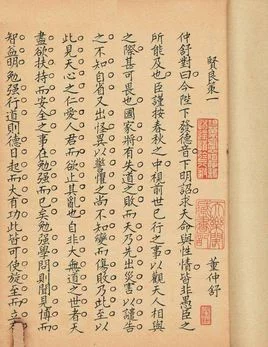 賢良策一
董仲舒
仲舒對曰今陛下發德音下明詔求天命與性情皆非愚臣之
所能及也臣謹按春秋之中視前世已行之事以觀天人相與
之際甚可畏也國家將有失道之敗而天乃先出災害以譴告
之不知自省又出怪異以警懼之尚不知變而傷敗乃至以
此見天心之仁愛人君而欲止其亂也自非大無道之世者天
盡欲扶持而安全之事在勉强而已矣勉强學問則聞見博而
智益明勉强行道則德日起而大有功此皆可使旋至而立